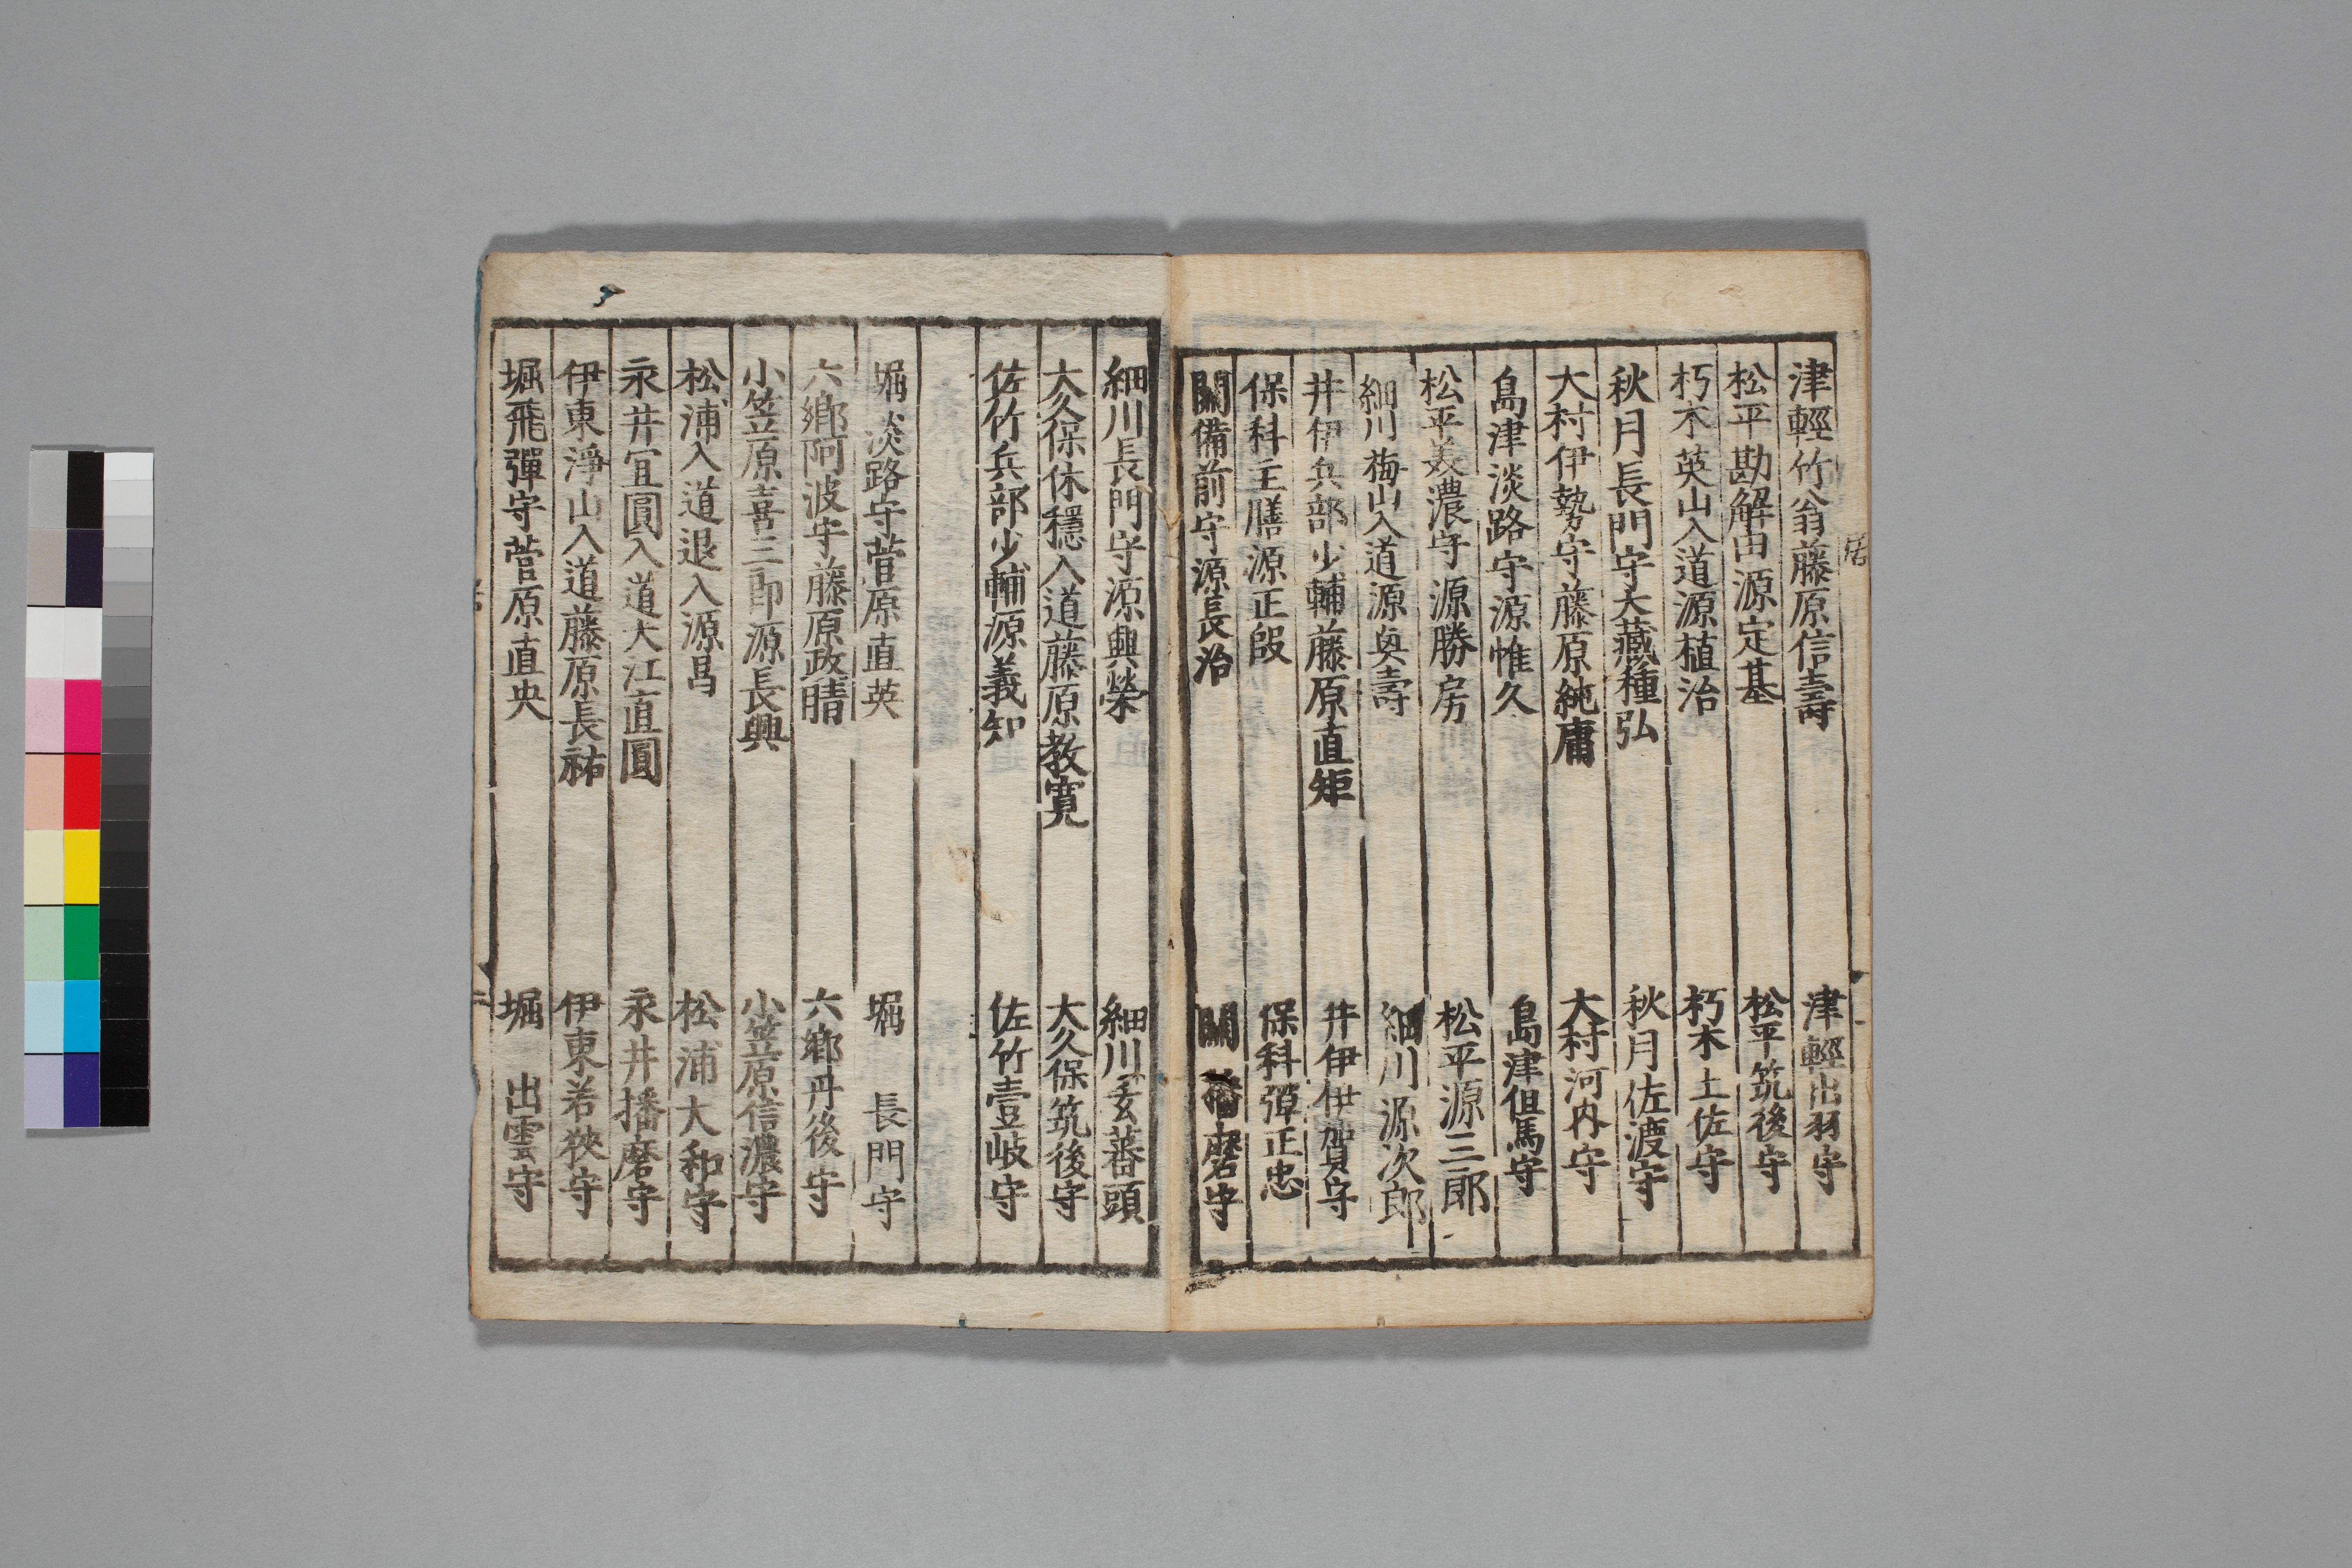 津輕竹翁藤原信壽　津輕出羽守
松平勘解由源定基　松平筑後守
朽木英山入道源植治　朽木土佐守
秋月長門守大藏種弘　秋月佐渡守
大村伊勢守藤原純庸　大村河内守
島津淡路守源惟久　島津但馬守
松平美濃守源勝房　松平源三郎
細川梅山入道源興壽　細川源次郎
井伊兵部少輔藤原直矩　井伊伊賀守
保科主膳源正殷　保科彈正忠
關備前守源長治　關播磨守
細川長門守源興榮　細川玄蕃頭
大久保休穩入道藤原教寛　大久保筑後守
佐竹兵部少輔源義知　佐竹壹岐守
堀淡路守菅原直英　堀長門守
六鄕阿波守藤原政晴　六鄕丹後守
小笠原喜三郎源長興　小笠原信濃守
松浦入道退入源昌　松浦大和守
永井宜圓入道大江直圓　永井播磨守
伊東淨山入道藤原長祐　伊東若狹守
堀飛彈守菅原直央　堀出雲守